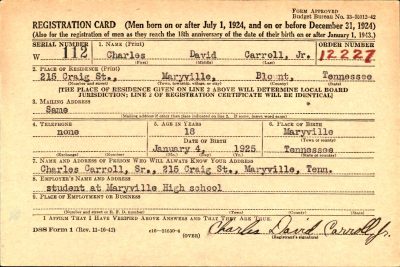 FORM APPROVED
Budget Bureau No. 33-R012-42
REGISTRATION CARD (Men born on or after July 1, 1924, and on or before December 31, 1924)
(Also for the registration of men as they reach the 18th anniversary of the date of their birth on or after January 1, 1943.)
SERIAL NUMBER 1. NAME (Print) ORDER NUMBER
W 112 Charles David Carroll, Jr. 12227
(First) (Middle) (Last)
2. PLACE OF RESIDENCE (Print)
215 Craig St., Maryville, Blount, Tennessee
[THE PLACE OF RESIDENCE GIVEN ON LINE 2 ABOVE WILL DETERMINE LOCAL BOARD
JURISDICTION; LINE 2 OF REGISTRATION CERTIFICATE WILL BE IDENTICAL]
3. MAILING ADDRESS
Same
[Mailing address if other than place indicated on line 2. If same, insert word same]
4. TELEPHONE 5. AGE IN YEARS 6. PLACE OF BIRTH
none 18 Maryville
DATE OF BIRTH
January 4, 1925 Tennessee
7. NAME AND ADDRESS OF PERSON WHO WILL ALWAYS KNOW YOUR ADDRESS
Charles Carroll, Sr., 215 Craig St., Maryville, Tenn.
8. EMPLOYER'S NAME AND ADDRESS
student at Maryville High school
9. PLACE OF EMPLOYMENT OR BUSINESS
I AFFIRM THAT I HAVE VERIFIED ABOVE ANSWERS AND THAT THEY ARE TRUE.
DSS Form 1 (Rev. 11-16-42) (OVER) Charles David Carroll Jr.
(Registrant's signature)